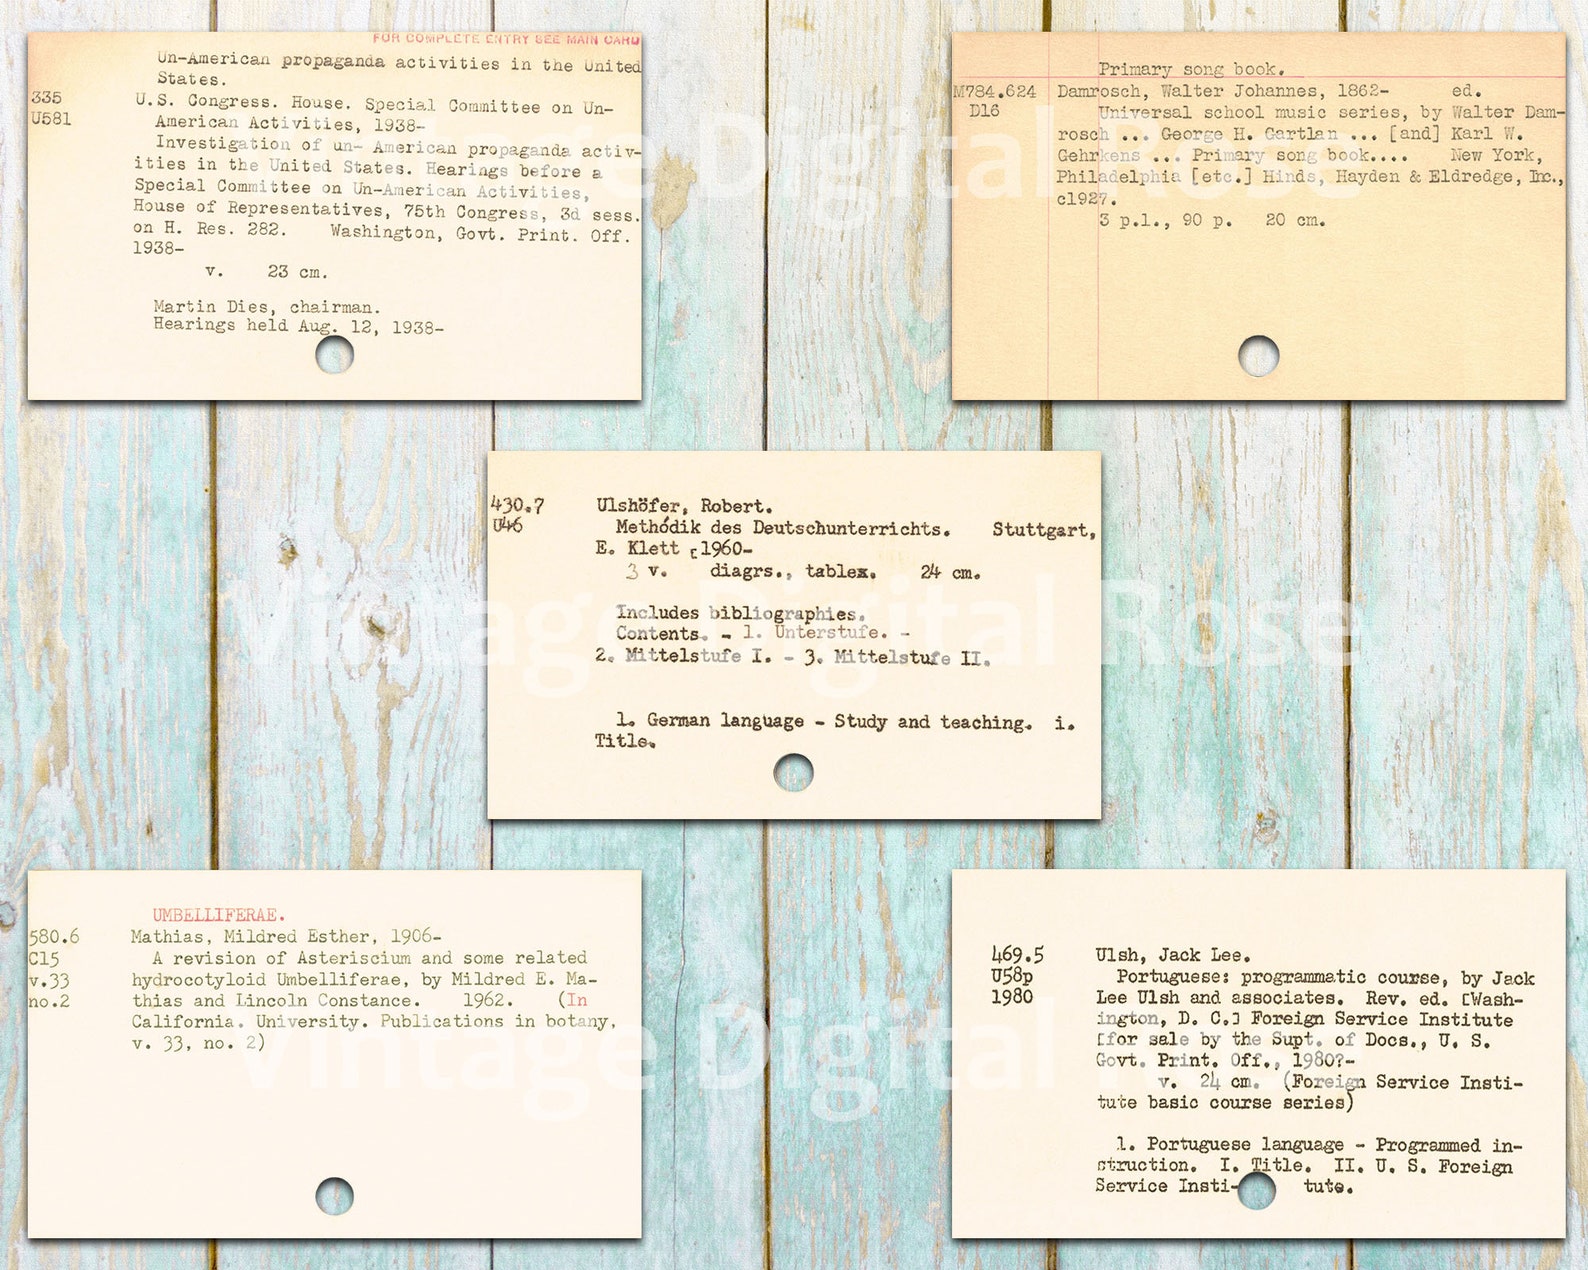 FOR COMPLETE ENTRY SEE MAIN CARD
Un-American propaganda activities in the United
States.
335
U581
U.S. Congress. House. Special Committee on Un-
American Activities, 1938-
Investigation of un- American propaganda activ-
ities in the United States. Hearings before a
Special Committee on Un-American Activities,
House of Representatives, 75th Congress, 3d sess.
on H. Res. 282. Washington, Govt. Print. Off.
1938-
v. 23 cm.
Martin Dies, chairman.
Hearings held Aug. 12, 1938-
Primary song book.
M784.624
D16
Damrosch, Walter Johannes, 1862- ed.
Universal school music series, by Walter Dam-
rosch ... George H. Gartlan ... [and] Karl W.
Gehrkens ... Primary song book.... New York,
Philadelphia [etc.] Hinds, Hayden & Eldredge, Inc.,
c1927.
3 p.l., 90 p. 20 cm.
430.7
U46
Ulshöfer, Robert.
Methódik des Deutschunterrichts. Stuttgart,
E. Klett [1960-
3 v. diagrs., tables. 24 cm.
Includes bibliographies.
Contents. - 1. Unterstufe. -
2. Mittelstufe I. - 3. Mittelstufe II.
1. German language - Study and teaching. i.
Title.
UMBELLIFERAE.
580.6
C15
v.33
no.2
Mathias, Mildred Esther, 1906-
A revision of Asteriscium and some related
hydrocotyloid Umbelliferae, by Mildred E. Ma-
thias and Lincoln Constance. 1962. (In
California. University. Publications in botany,
v. 33, no. 2)
469.5
U58p
1980
Ulsh, Jack Lee.
Portuguese: programmatic course, by Jack
Lee Ulsh and associates. Rev. ed. [Wash-
ington, D. C.] Foreign Service Institute
[for sale by the Supt. of Docs., U. S.
Govt. Print. Off., 1980?-
v. 24 cm. (Foreign Service Insti-
tute basic course series)
1. Portuguese language - Programmed in-
struction. I. Title. II. U. S. Foreign
Service Insti- tute.
Vintage Digital Rose
Vintage Digital Rose
Vintage Digital Rose